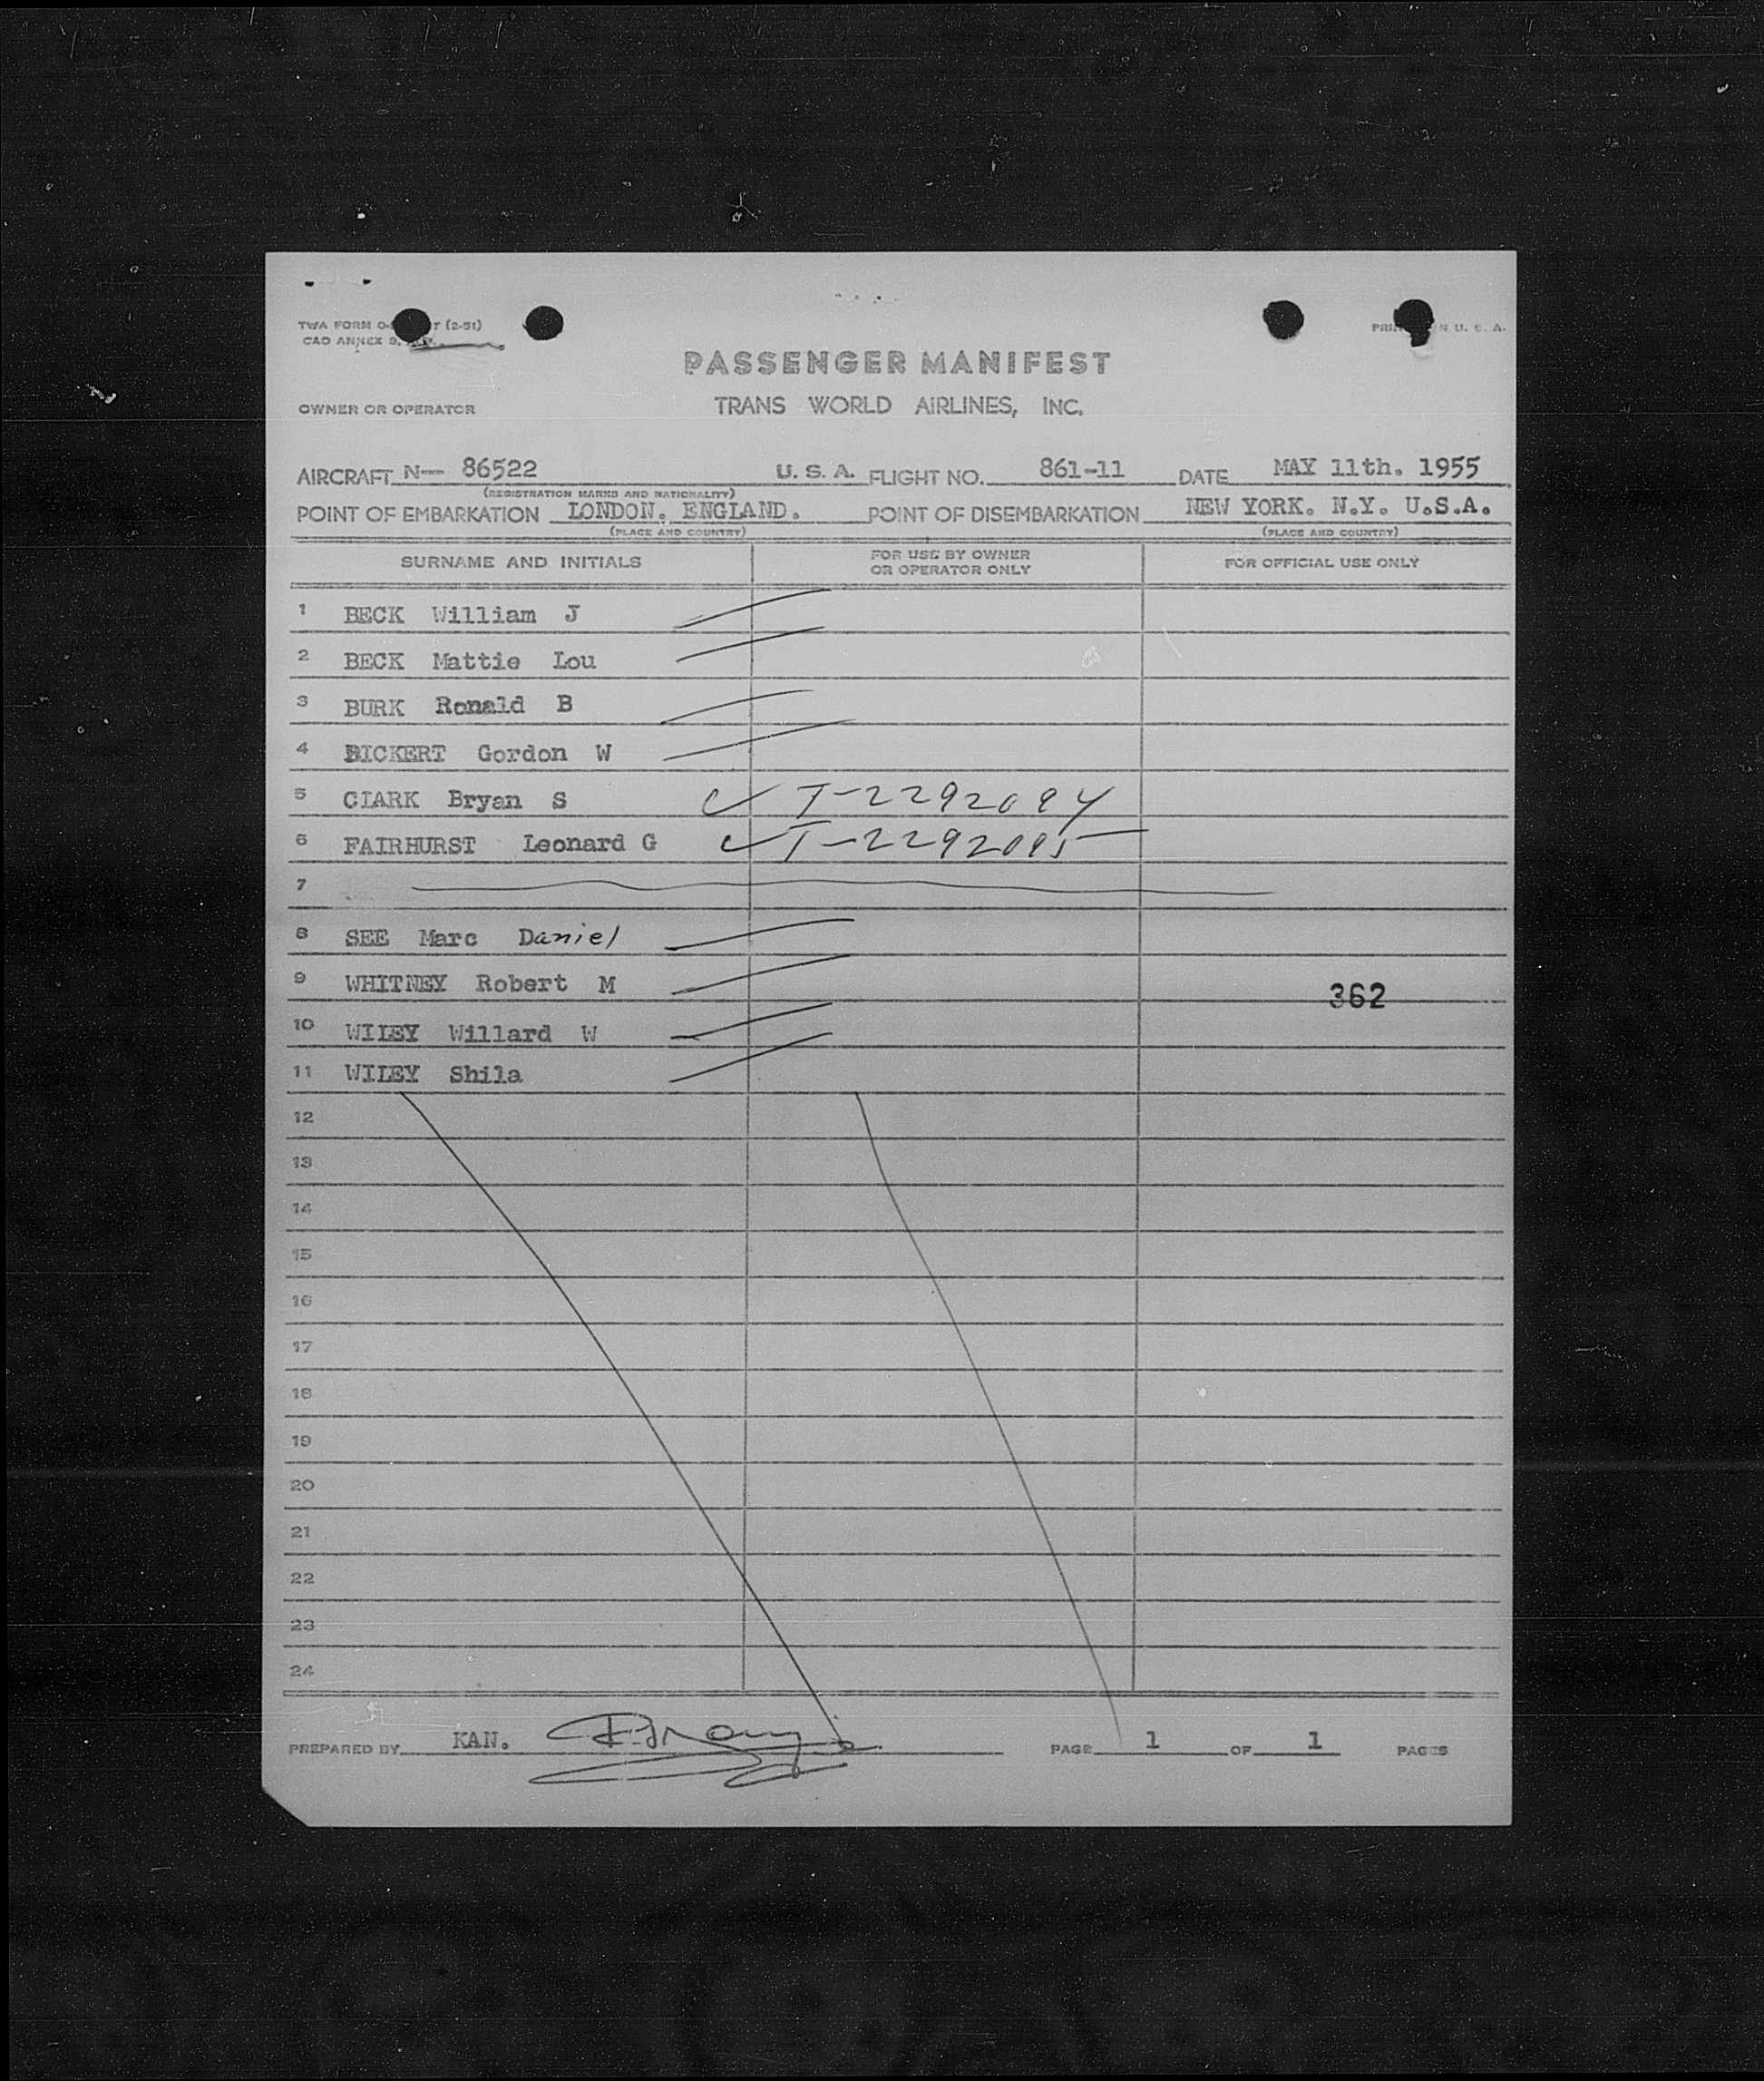 TWA FORM O- T (2-51)
CAO ANNEX 9,
PRINTED IN U. S. A.
PASSENGER MANIFEST
OWNER OR OPERATOR TRANS WORLD AIRLINES, INC.
AIRCRAFT N-- 86522 U. S. A. FLIGHT NO. 861-11 DATE MAY 11th. 1955
(REGISTRATION MARKS AND NATIONALITY)
POINT OF EMBARKATION LONDON. ENGLAND. POINT OF DISEMBARKATION NEW YORK. N.Y. U.S.A.
(PLACE AND COUNTRY) (PLACE AND COUNTRY)
SURNAME AND INITIALS FOR USE BY OWNER OR OPERATOR ONLY FOR OFFICIAL USE ONLY
1 BECK William J
2 BECK Mattie Lou
3 BURK Ronald B
4 BICKERT Gordon W
5 CLARK Bryan S T-2292094
6 FAIRHURST Leonard G T-2292095
7
8 SEE Marc Daniel
9 WHITNEY Robert M
362
10 WILEY Willard W
11 WILEY Shila
12
13
14
15
16
17
18
19
20
21
22
23
24
PREPARED BY KAN. PAGE 1 OF 1 PAGES